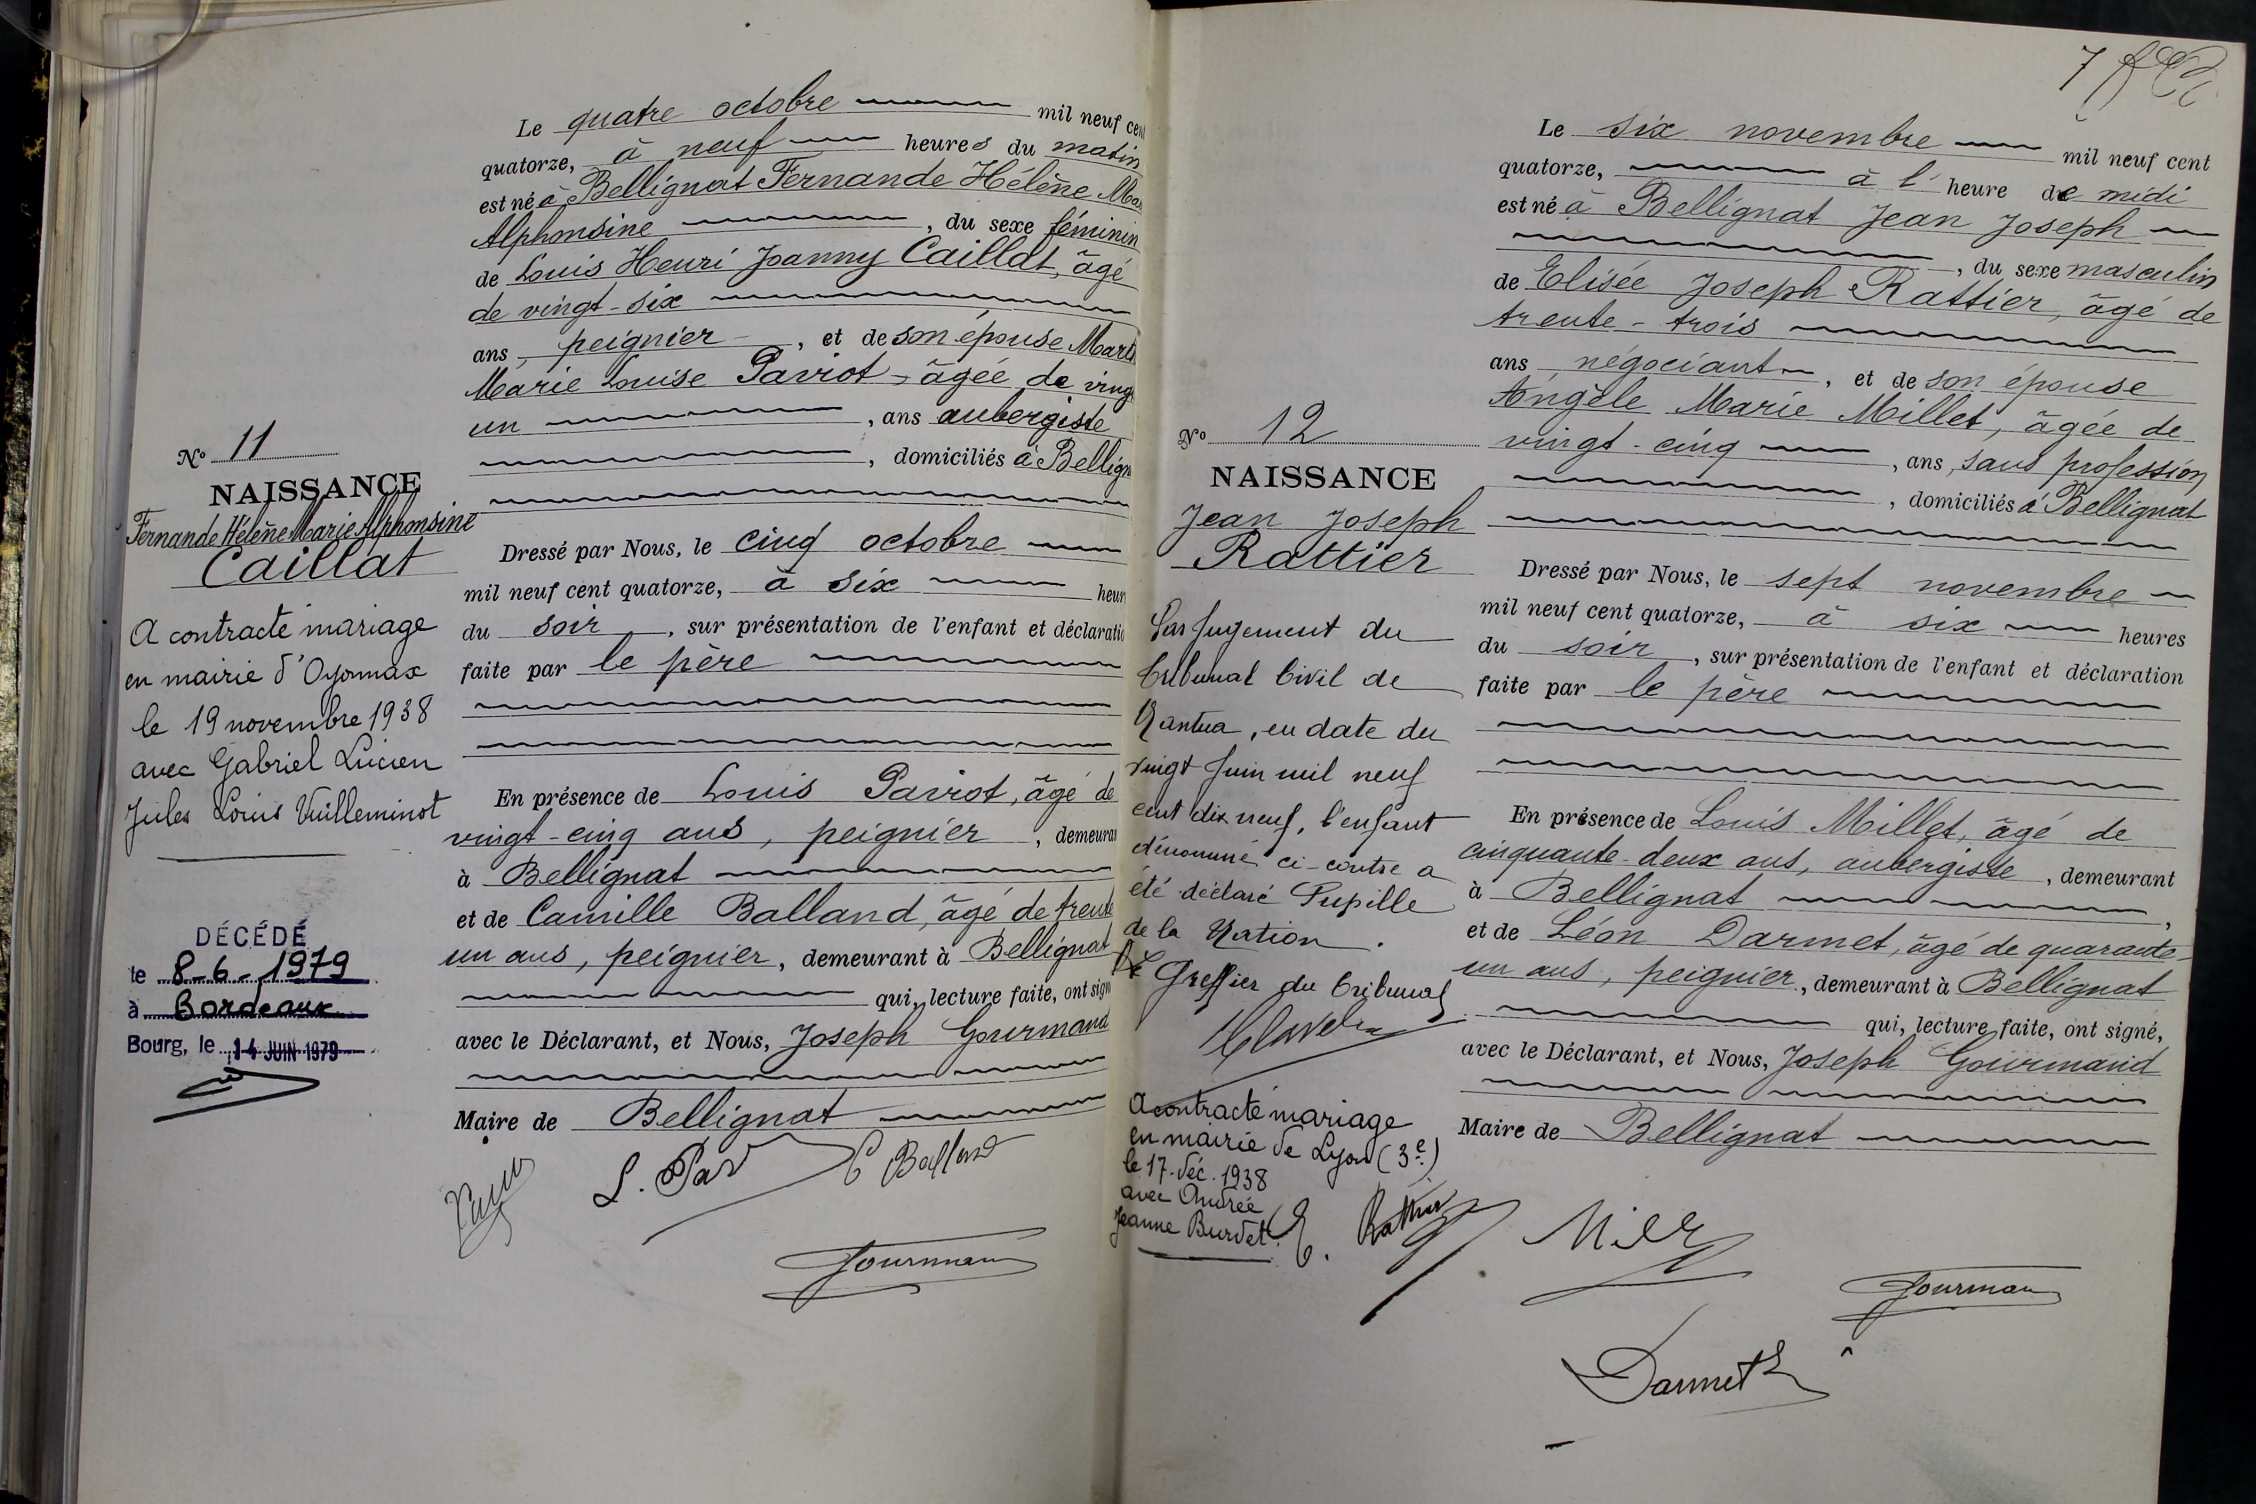 N° 11
NAISSANCE
Fernande Hélène Marie Alphonsine
Caillat
A contracté mariage
en mairie d'Oyonnax
le 19 novembre 1938
avec Gabriel Lucien
Jules Louis Vuilleminot
DÉCÉDÉ
le 8-6-1979
à Bordeaux
Bourg, le 14 JUIN 1979
Le quatre octobre mil neuf cent
quatorze, à neuf heures du matin
est né à Bellignat Fernande Hélène Mar
Alphonsine , du sexe féminin
de Louis Henri Joanny Caillat, âgé
de vingt-six
ans, peignier , et de son épouse Mart
Marie Louise Paviot, âgée de vingt
un , ans aubergiste
, domiciliés à Bellign
Dressé par Nous, le cinq octobre
mil neuf cent quatorze, à six heur
du soir , sur présentation de l'enfant et déclaratio
faite par le père
En présence de Louis Paviot, âgé de
vingt-cinq ans, peignier , demeuran
à Bellignat
et de Camille Balland, âgé de trente
un ans, peignier, demeurant à Bellignat
qui, lecture faite, ont sign
avec le Déclarant, et Nous, Joseph Gourmand
Maire de Bellignat
L. Pav
C Balland
Gourmand
7
N° 12
NAISSANCE
Jean Joseph
Rattier
Par Jugement du
Tribunal Civil de
Nantua, en date du
vingt Juin mil neuf
cent dix neuf, l'enfant
dénommé ci-contre a
été déclaré Pupille
de la Nation.
Le Greffier du Tribunal
A contracté mariage
en mairie de Lyon (3e)
le 17. déc. 1938
avec Andrée
Jeanne Burdet.
Le six novembre mil neuf cent
quatorze, à l'heure de midi
est né à Bellignat Jean Joseph
, du sexe masculin
de Elisée Joseph Rattier, âgé de
trente-trois
ans, négociant , et de son épouse
Angèle Marie Millet, âgée de
vingt-cinq , ans, sans profession
, domiciliés à Bellignat
Dressé par Nous, le sept novembre
mil neuf cent quatorze, à six heures
du soir , sur présentation de l'enfant et déclaration
faite par le père
En présence de Louis Millet, âgé de
cinquante-deux ans, aubergiste , demeurant
à Bellignat ,
et de Léon Darmet, âgé de quarante-
un ans, peignier, demeurant à Bellignat
qui, lecture faite, ont signé,
avec le Déclarant, et Nous, Joseph Gourmand
Maire de Bellignat
E. Rattier
Gourman
Darmet